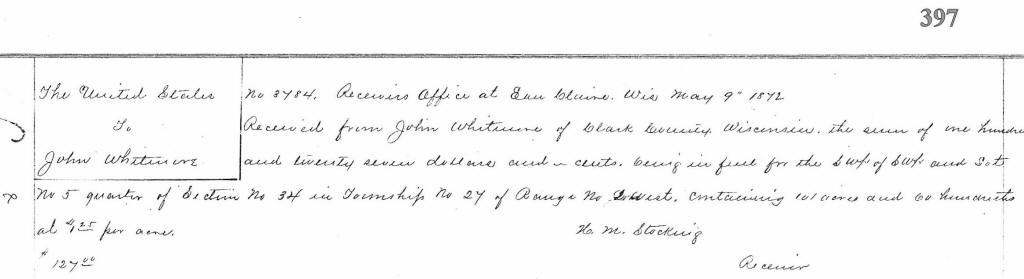 397
The United States
To
John Whitmore
No 3784. Receivers Office at Eau Claire. Wis May 9" 1872
Received from John Whitmore of Clark County, Wisconsin. the sum of one hundre
and twenty seven dollars and – cents. being in full for the SW¼ of SW¼ and Lot
No 5 quarter of Section No 34 in Township No 27 of Range No West, containing 101 acres and 60 hundreths
at $1.25 per acre.
H. M. Stocking
$127.00
Receiver